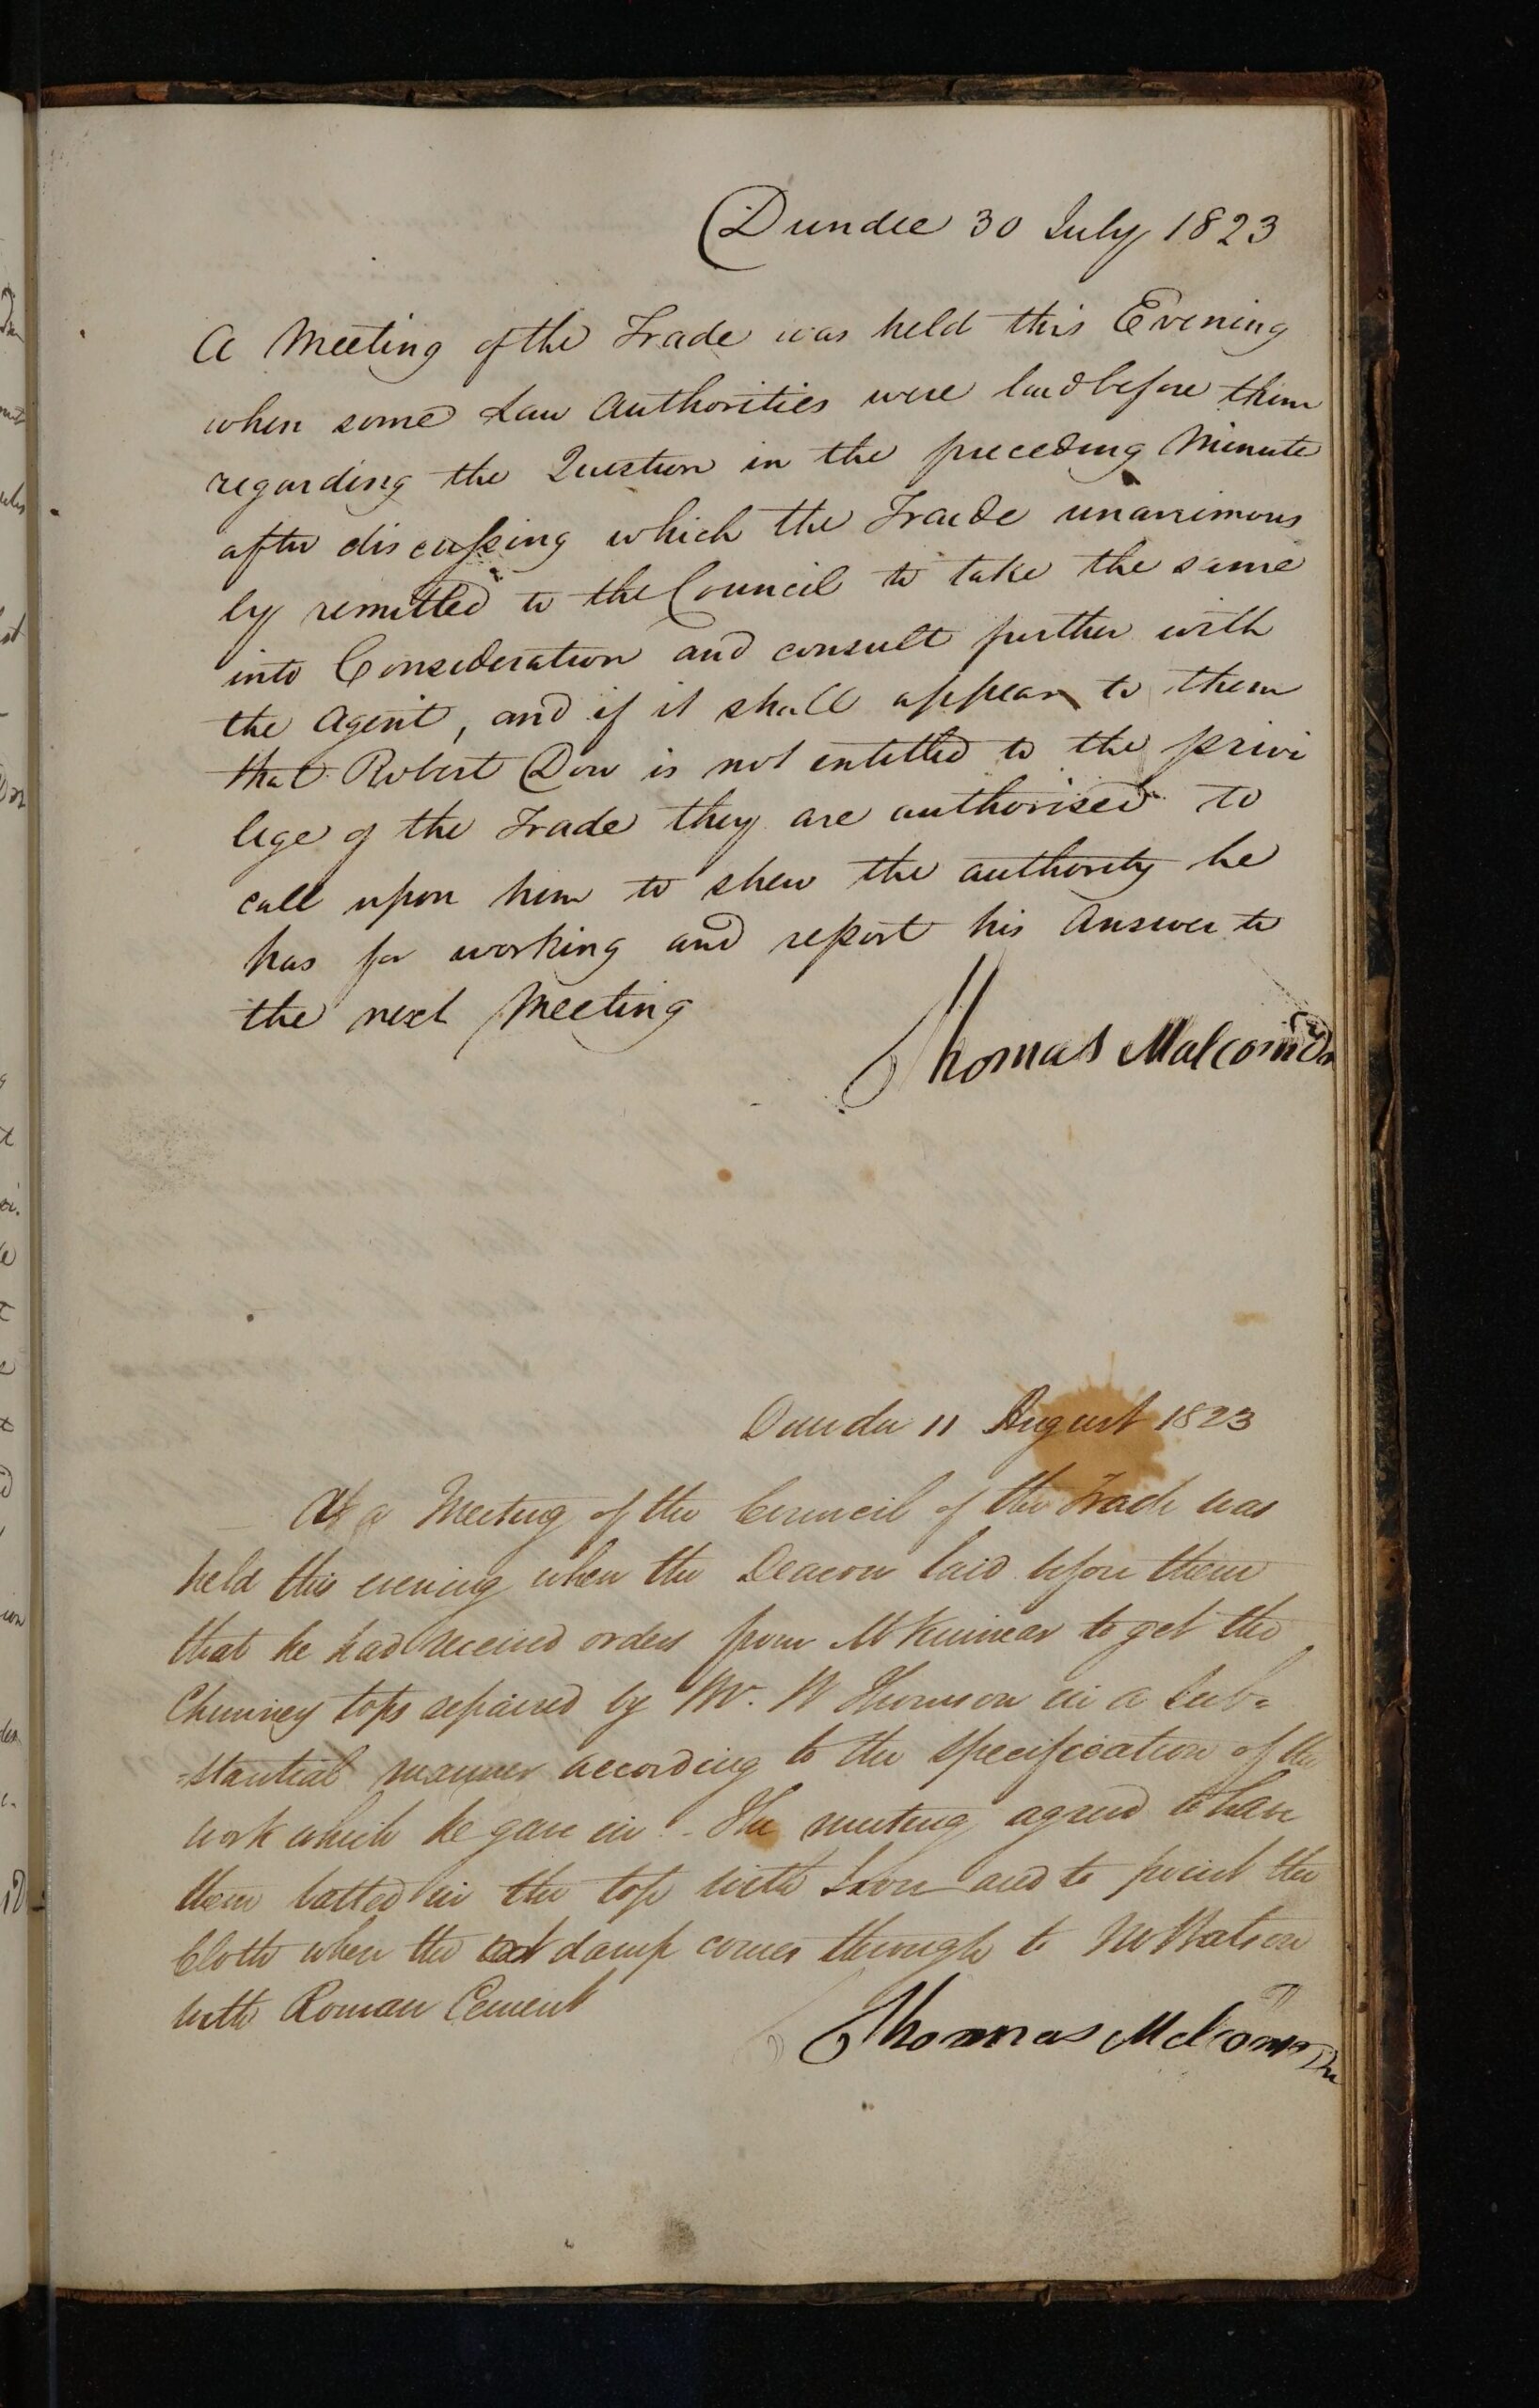 Dundee 30 July 1823
A Meeting of the Trade was held this Evening
when some Law Authorities were laid before them
regarding the Question in the preceding Minute
after discussing which the Trade unanimous
ly remitted to the Council to take the same
into Consideration and consult further with
the Agent, and if it shall appear to them
that Robert Dow is not entitled to the privi
lege of the Trade they are authorised to
call upon him to shew the authority he
has for working and report his Answer to
the next Meeting
Thomas Malcom
Dundee 11 August 1823
At a Meeting of the Council of the Trade was
held this evening when the Deacon laid before them
that he had received orders from Mr Kinnear to get the
Chimney tops repaired by Mr. W Thomson in a sub-
-stantial manner according to the Specification of the
work which he gave in. - The meeting agreed to have
them batted in the top with Iron and to point the
when the damp comes through to Mr Watson
with Roman Cement
Thomas Malcom